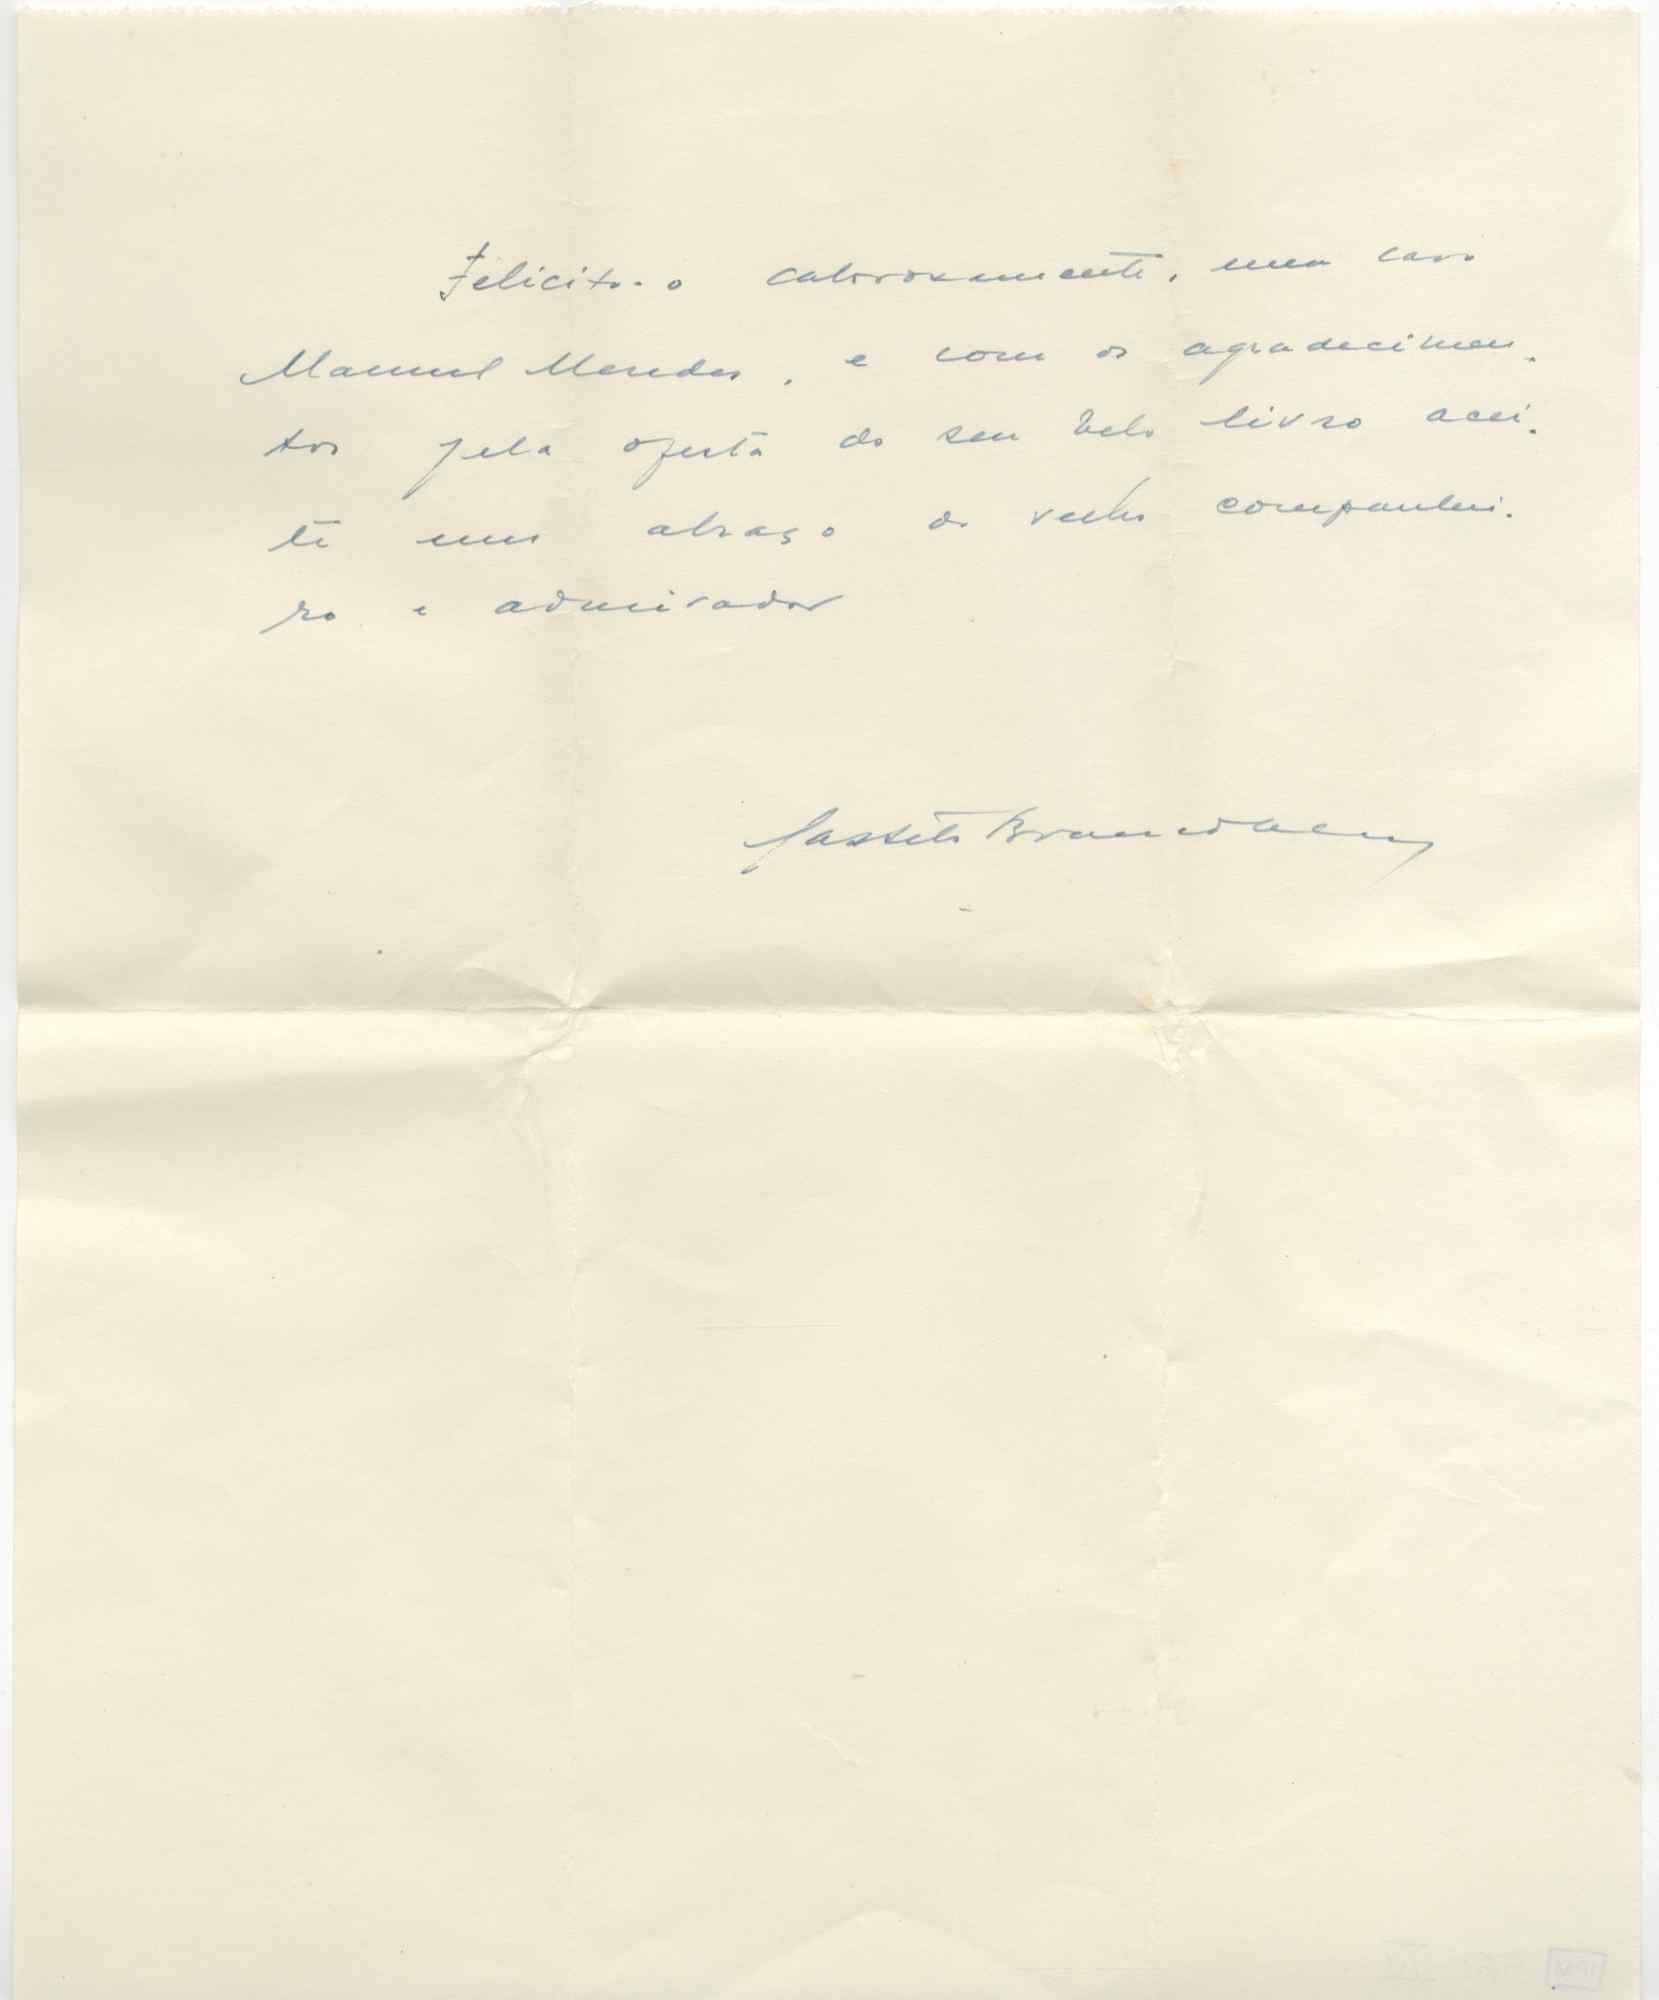 Felicito-o calorosamente, meu caro
Manuel Mendes, e com os agradecimen-
tos pela oferta do seu belo livro acei-
te um abraço do velho companhei-
ro e admirador